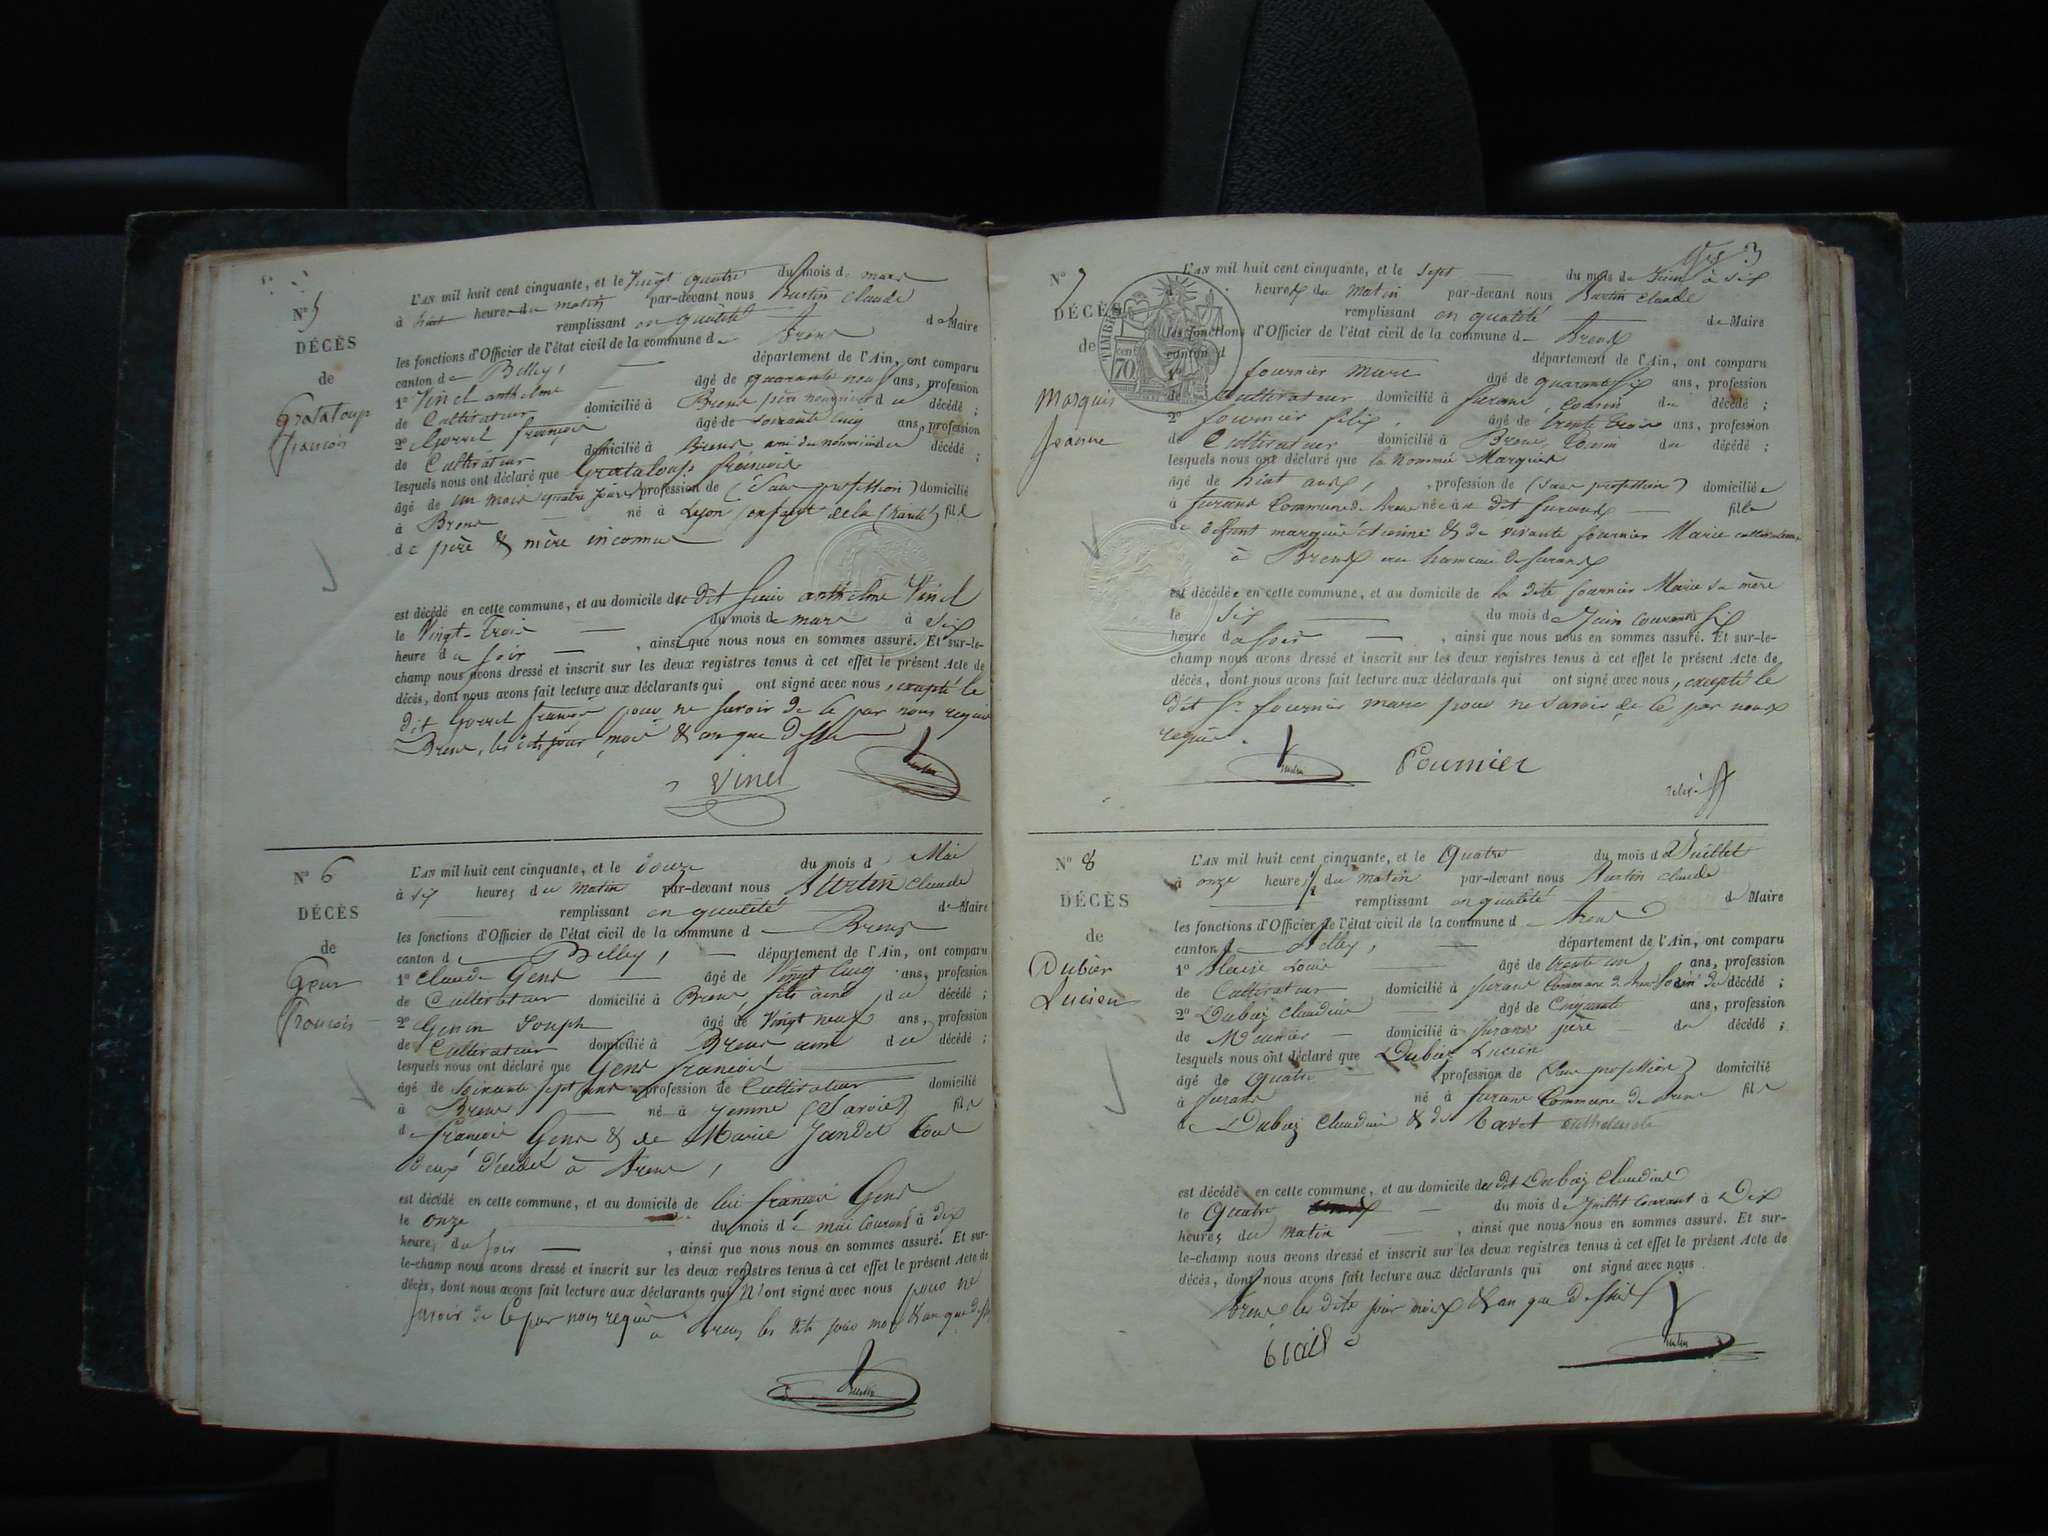 N° 5
DÉCÈS
de
Grataloup
françois
L'AN mil huit cent cinquante, et le Vingt quatre du mois de mars
à huit heures du matin par-devant nous Martin Claude
remplissant en qualité de Maire
les fonctions d'Officier de l'état civil de la commune de Brens
canton de Belley, département de l'Ain, ont comparu
1° Vinel anthelme âgé de quarante neuf ans, profession
de Cultivateur domicilié à Brens père nourricier du décédé ;
2° Gorrel françois âgé de soixante cinq ans, profession
de Cultivateur domicilié à Brens ami du nourricier du décédé ;
lesquels nous ont déclaré que Grataloup françois
âgé de un mois quatre jours profession de (sans profession) domicilié
à Brens né à Lyon (enfant de la Charité) fils
de père & mère inconnus
est décédé en cette commune, et au domicile du dit sieur anthelme Vinel
le Vingt-trois du mois de mars à Six
heure du soir , ainsi que nous nous en sommes assuré. Et sur-le-
champ nous avons dressé et inscrit sur les deux registres tenus à cet effet le présent Acte de
décès, dont nous avons fait lecture aux déclarants qui ont signé avec nous, excepté le
dit Gorrel françois pour ne savoir de ce par nous requis
Brens, les dits jour mois & an que dessus
Vinel
Martin
N° 6
DÉCÈS
de
Gens
françois
L'AN mil huit cent cinquante, et le douze du mois d Mai
à six heures du matin par-devant nous Martin Claude
remplissant en qualité de Maire
les fonctions d'Officier de l'état civil de la commune d Brens
canton de Belley, département de l'Ain, ont comparu
1° Claude Gens âgé de Vingt cinq ans, profession
de Cultivateur domicilié à Brens, fils ainé du décédé ;
2° Genin Joseph âgé de Vingt neuf ans, profession
de Cultivateur domicilié à Brens ami du décédé ;
lesquels nous ont déclaré que Gens françois
âgé de soixante sept ans profession de Cultivateur domicilié
à Brens né à yenne (Savoie) fils
de françois Gens & de Marie Jandet tous
deux décédés à Brens,
est décédé en cette commune, et au domicile de lui françois Gens
le onze du mois de mai courant à dix
heures du soir , ainsi que nous nous en sommes assuré. Et sur-
le-champ nous avons dressé et inscrit sur les deux registres tenus à cet effet le présent Acte de
décès, dont nous avons fait lecture aux déclarants qui N'ont signé avec nous pour ne
savoir de ce par nous requis à Brens les dits jours mois & an que dessus
Martin
3
N° 7
DÉCÈS
de
Marquis
Jeanne
TIMBRE
70
L'AN mil huit cent cinquante, et le sept du mois de Juin à six
heures du matin par-devant nous Martin Claude
remplissant en qualité de Maire
les fonctions d'Officier de l'état civil de la commune de Brens
canton d département de l'Ain, ont comparu
fournier marc âgé de quarante six ans, profession
de Cultivateur domicilié à Surans, cousin du décédé ;
2° fournier félix, âgé de trente trois ans, profession
de Cultivateur domicilié à Brens, Cousin du décédé ;
lesquels nous ont déclaré que la nommée Marquis
âgé de huit ans, , profession de (sans profession) domiciliée
à Surans Commune de Brens née au dit Surans fille
de défunt marquis étienne & de vivante fournier Marie cultivateurs
à Brens au hameau de Surans
est décédée en cette commune, et au domicile de la dite fournier Marie sa mère
le Six du mois de Juin courant à six
heure du soir , ainsi que nous nous en sommes assuré. Et sur-le-
champ nous avons dressé et inscrit sur les deux registres tenus à cet effet le présent Acte de
décès, dont nous avons fait lecture aux déclarants qui ont signé avec nous, excepté le
dit Sr fournier marc pour ne savoir de ce par nous
requis.
Martin Fournier
félix
N° 8
DÉCÈS
de
Dubier
Lucien
L'AN mil huit cent cinquante, et le Quatre du mois de Juillet
à onze heures ½ du matin par-devant nous Martin Claude
remplissant en qualité d Maire
les fonctions d'Officier de l'état civil de la commune d Brens
canton de Belley, département de l'Ain, ont comparu
1° Louis âgé de trente un ans, profession
de Cultivateur domicilié à Surans Commune de Brens Voisin du décédé ;
2° Duboz Claudius âgé de Cinquante ans, profession
de Meunier domicilié à Surans père du décédé ;
lesquels nous ont déclaré que Dubier Lucien
âgé de quatre profession de (sans profession) domicilié
à Surans né à Surans Commune de Brens fils
de Duboz Claudius & de Tavet
est décédé en cette commune, et au domicile du dit Duboz Claudius
le Quatre du mois de Juillet courant à Dix
heures du matin , ainsi que nous nous en sommes assuré. Et sur-
le-champ nous avons dressé et inscrit sur les deux registres tenus à cet effet le présent Acte de
décès, dont nous avons fait lecture aux déclarants qui ont signé avec nous
Brens les dits jour mois & an que dessus
Martin